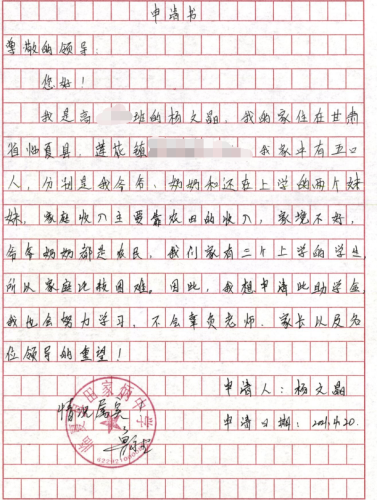 申请书
尊敬的领导：
您好！
我是高 班的杨文晶，我的家住在甘肃
省临夏县，莲花镇 我家中有五口
人，分别是我爷爷、奶奶和还在上学的两个妹
妹，家庭收入主要靠农田的收入，家境不好，
爷爷奶奶都是农民，我们家有三个上学的学生，
所以家庭比较困难。因此，我想申请此助学金，
我也会努力学习，不会辜负老师、家长以及各
位领导的重望！
申请人：杨文晶
申请日期：2021.4.20.
情况属实
田家炳中学